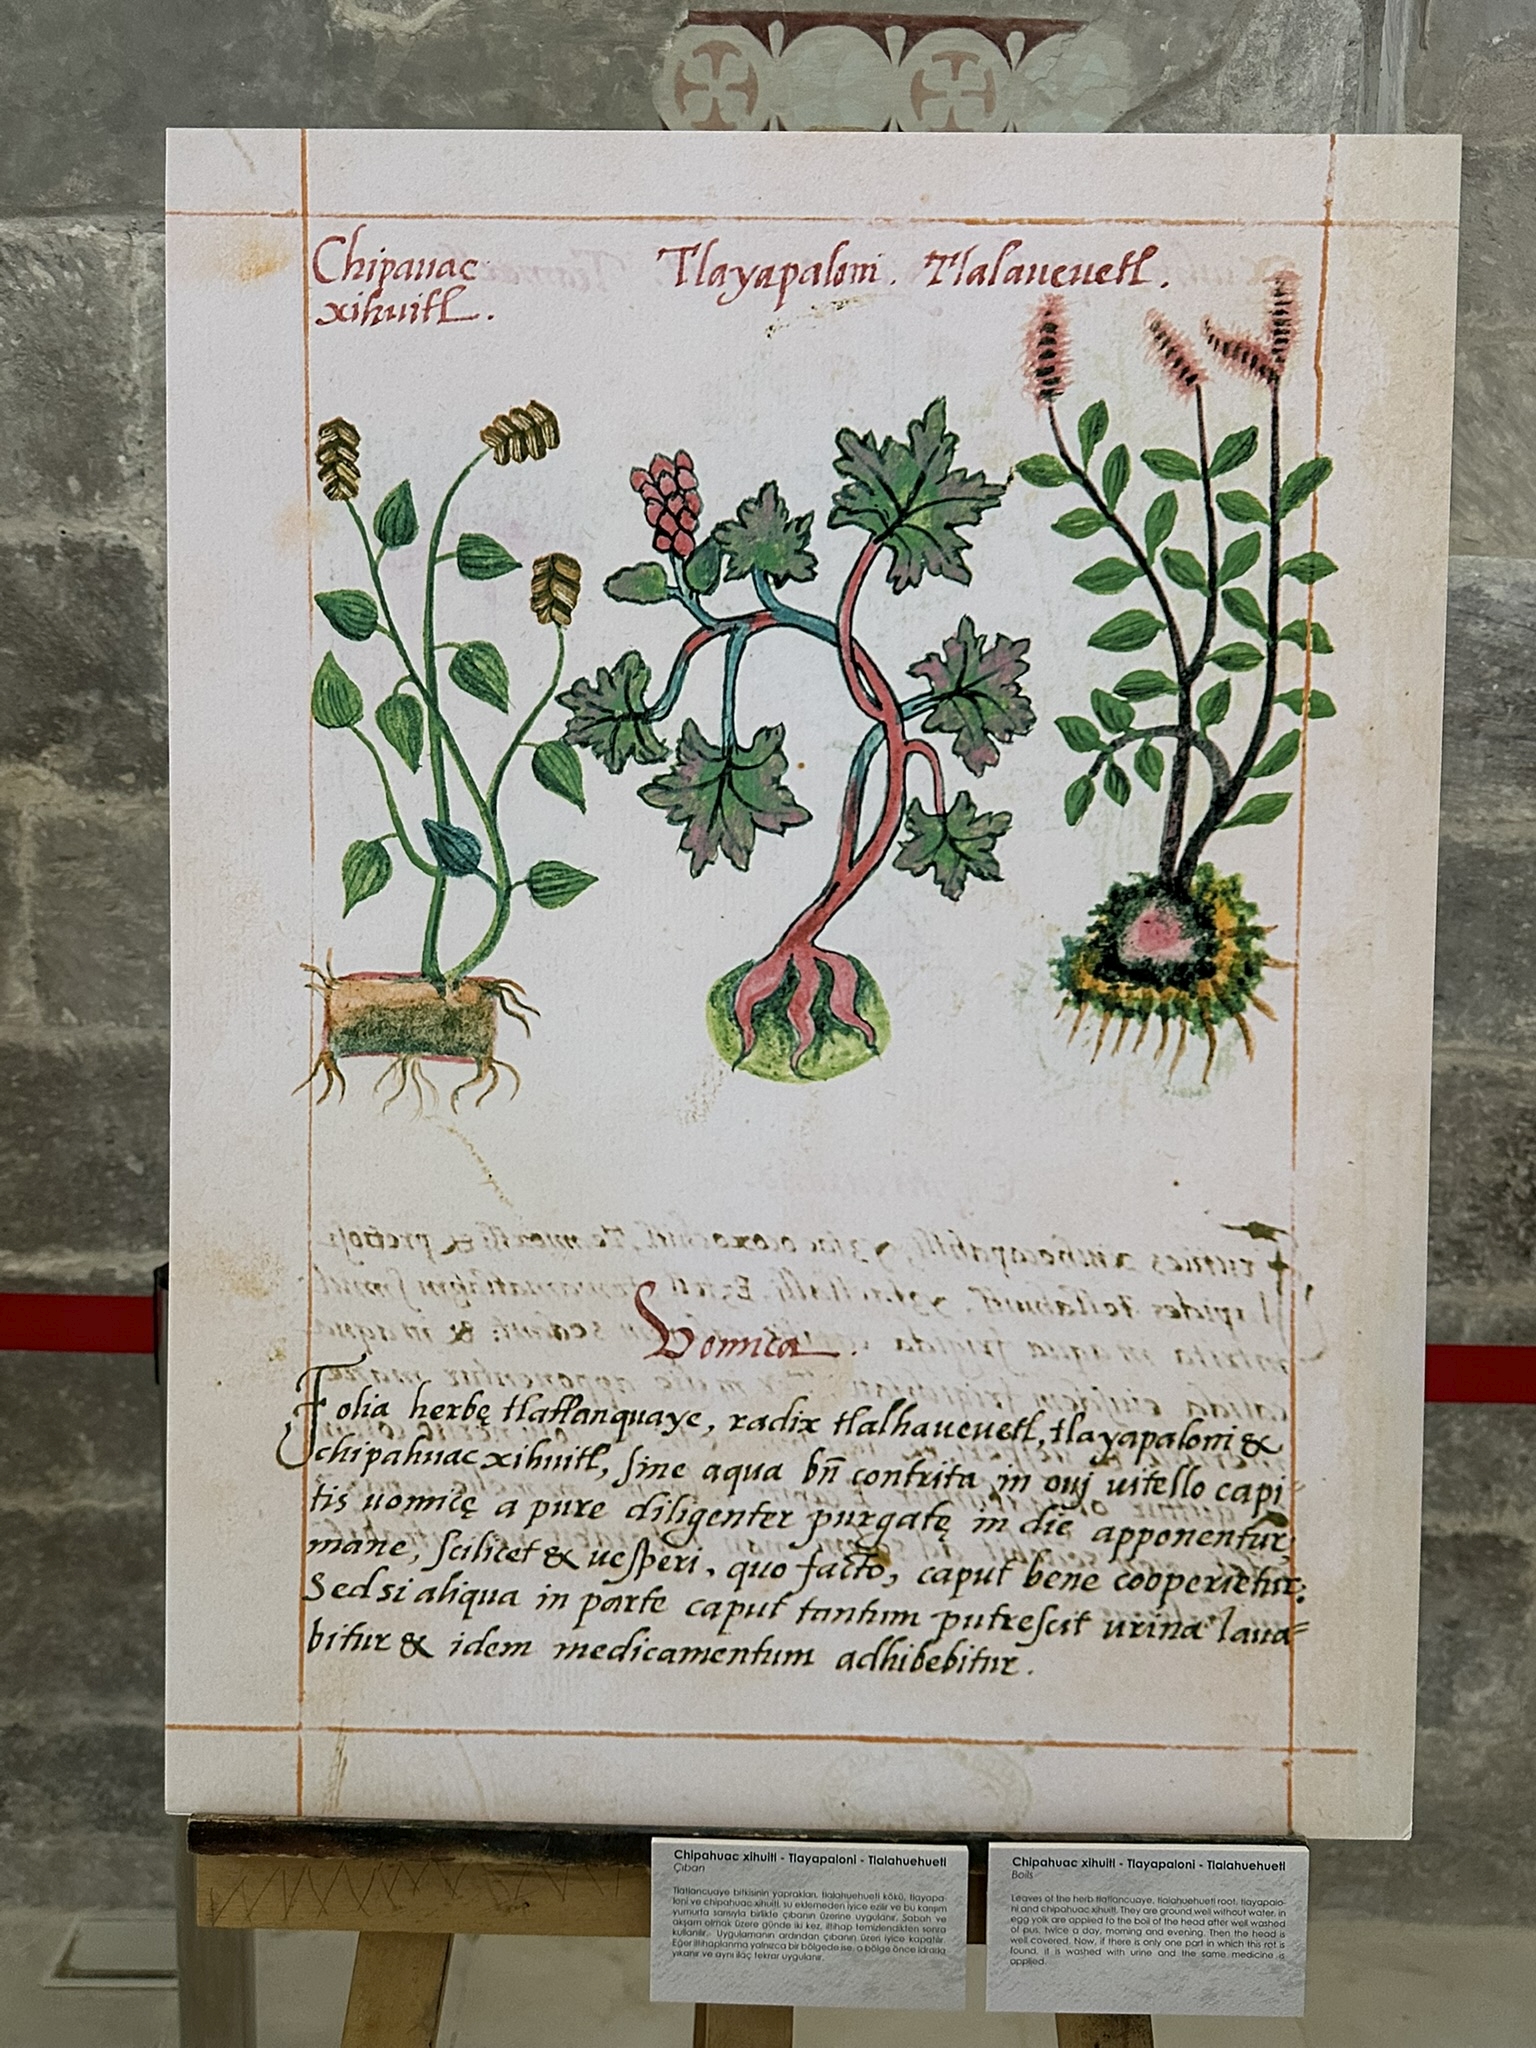 Chipauac
xihuitl.
Tlayapaloni. Tlalaueuetl.
Vomica.
Folia herbę tlatlanquaye, radix tlalhaueuetl, tlayapaloni &
chipahuac xihuitl, sine aqua bñ contrita in ouj uitello capi-
tis uomicę a pure diligenter purgatę in die apponentur,
mane, scilicet & uesperi, quo facto, caput bene cooperietur:
Sed si aliqua in parte caput tantum putrescit urina laua=
bitur & idem medicamentum adhibebitur.
Chipahuac xihuitl - Tlayapaloni - Tlalahuehuetl
Çıban
Tlatlancuaye bitkisinin yaprakları, tlalahuehuetl kökü, tlayapa-
loni ve chipahuac xihuitl, su eklemeden iyice ezilir ve bu karışım
yumurta sarısıyla birlikte çıbanın üzerine uygulanır. Sabah ve
akşam olmak üzere günde iki kez, iltihap temizlendikten sonra
kullanılır. Uygulamanın ardından çıbanın üzeri iyice kapatılır.
Eğer iltihaplanma yalnızca bir bölgede ise, o bölge önce idrarla
yıkanır ve aynı ilaç tekrar uygulanır.
Chipahuac xihuitl - Tlayapaloni - Tlalahuehuetl
Boils
Leaves of the herb tlatlancuaye, tlalahuehuetl root, tlayapalo-
ni and chipahuac xihuitl. They are ground well without water, in
egg yolk are applied to the boil of the head after well washed
of pus, twice a day, morning and evening. Then the head is
well covered. Now, if there is only one part in which this rot is
found, it is washed with urine and the same medicine is
applied.